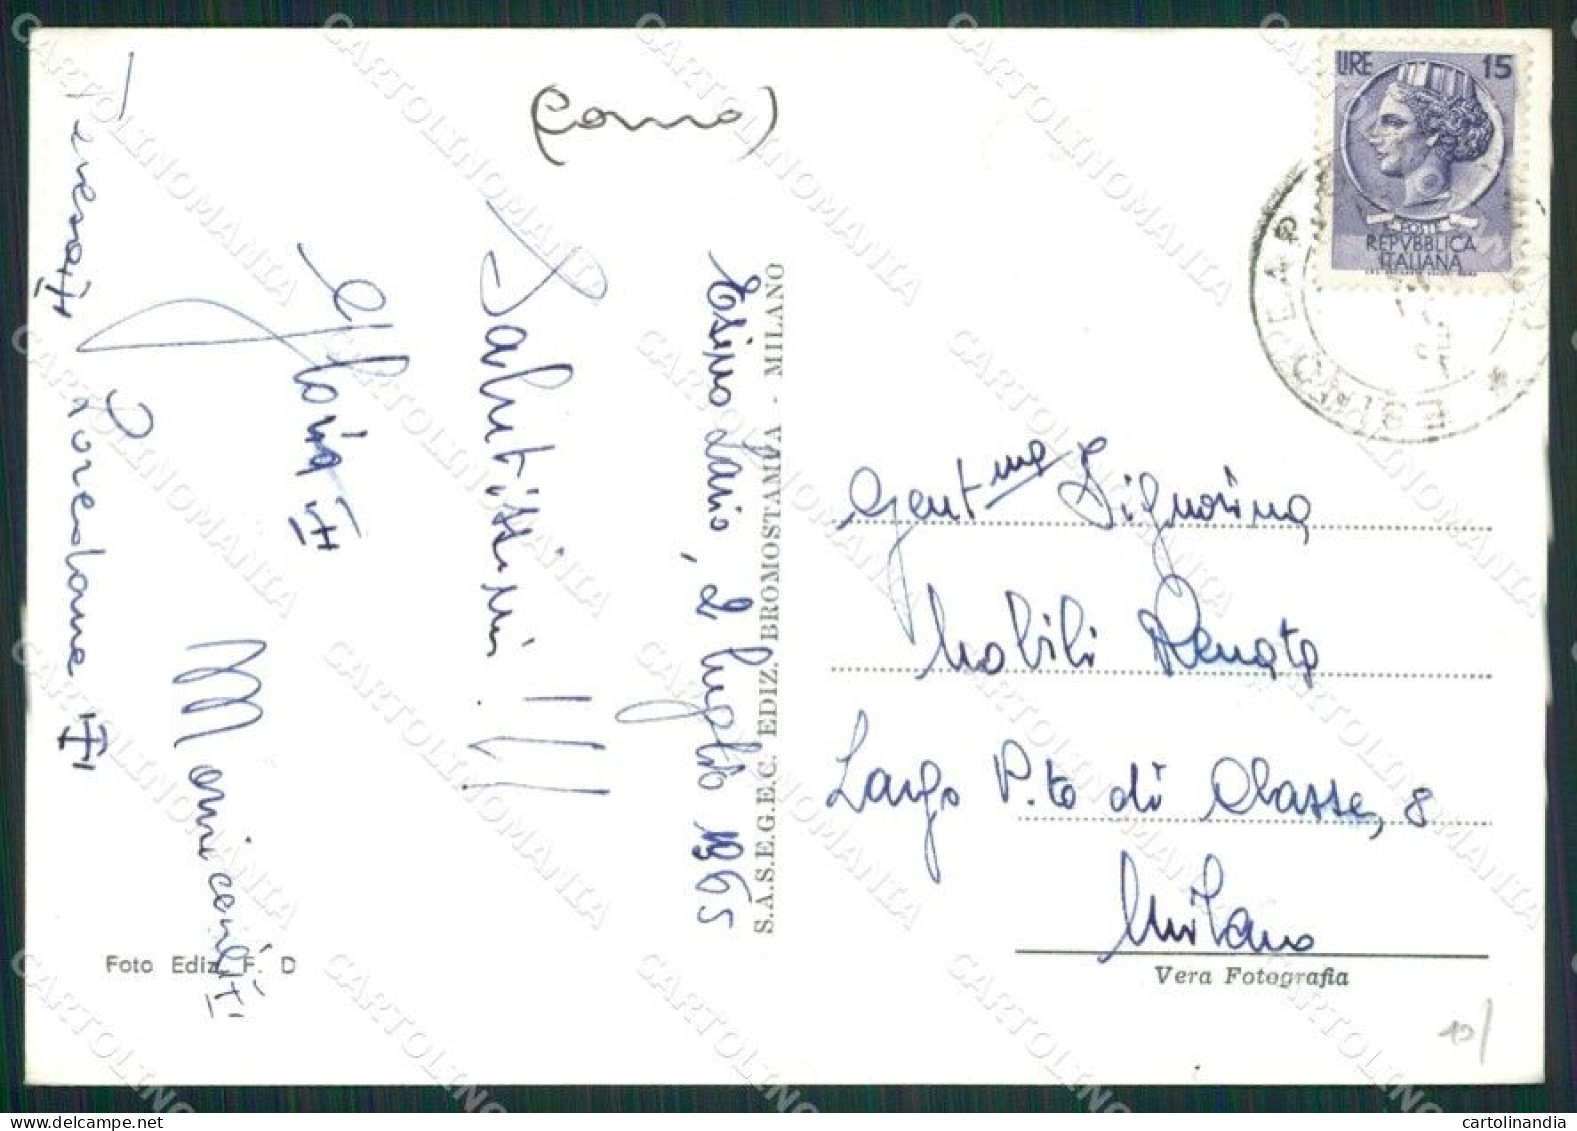 (Como)
Esino Lario, 2 luglio 1965
Salutissimi!!!
Teresa
Loredana
S.A.S.E.G.E.C. EDIZ. BROMOSTAMPA - MILANO
Foto Ediz. F. D
LIRE 15
POSTE
REPVBBLICA
ITALIANA
ESINO
Gent.ma Signorina
Nobili Renata
Largo P.to di Classe, 8
Milano
Vera Fotografia
10/
CARTOLINOMANIA
cartolinandia